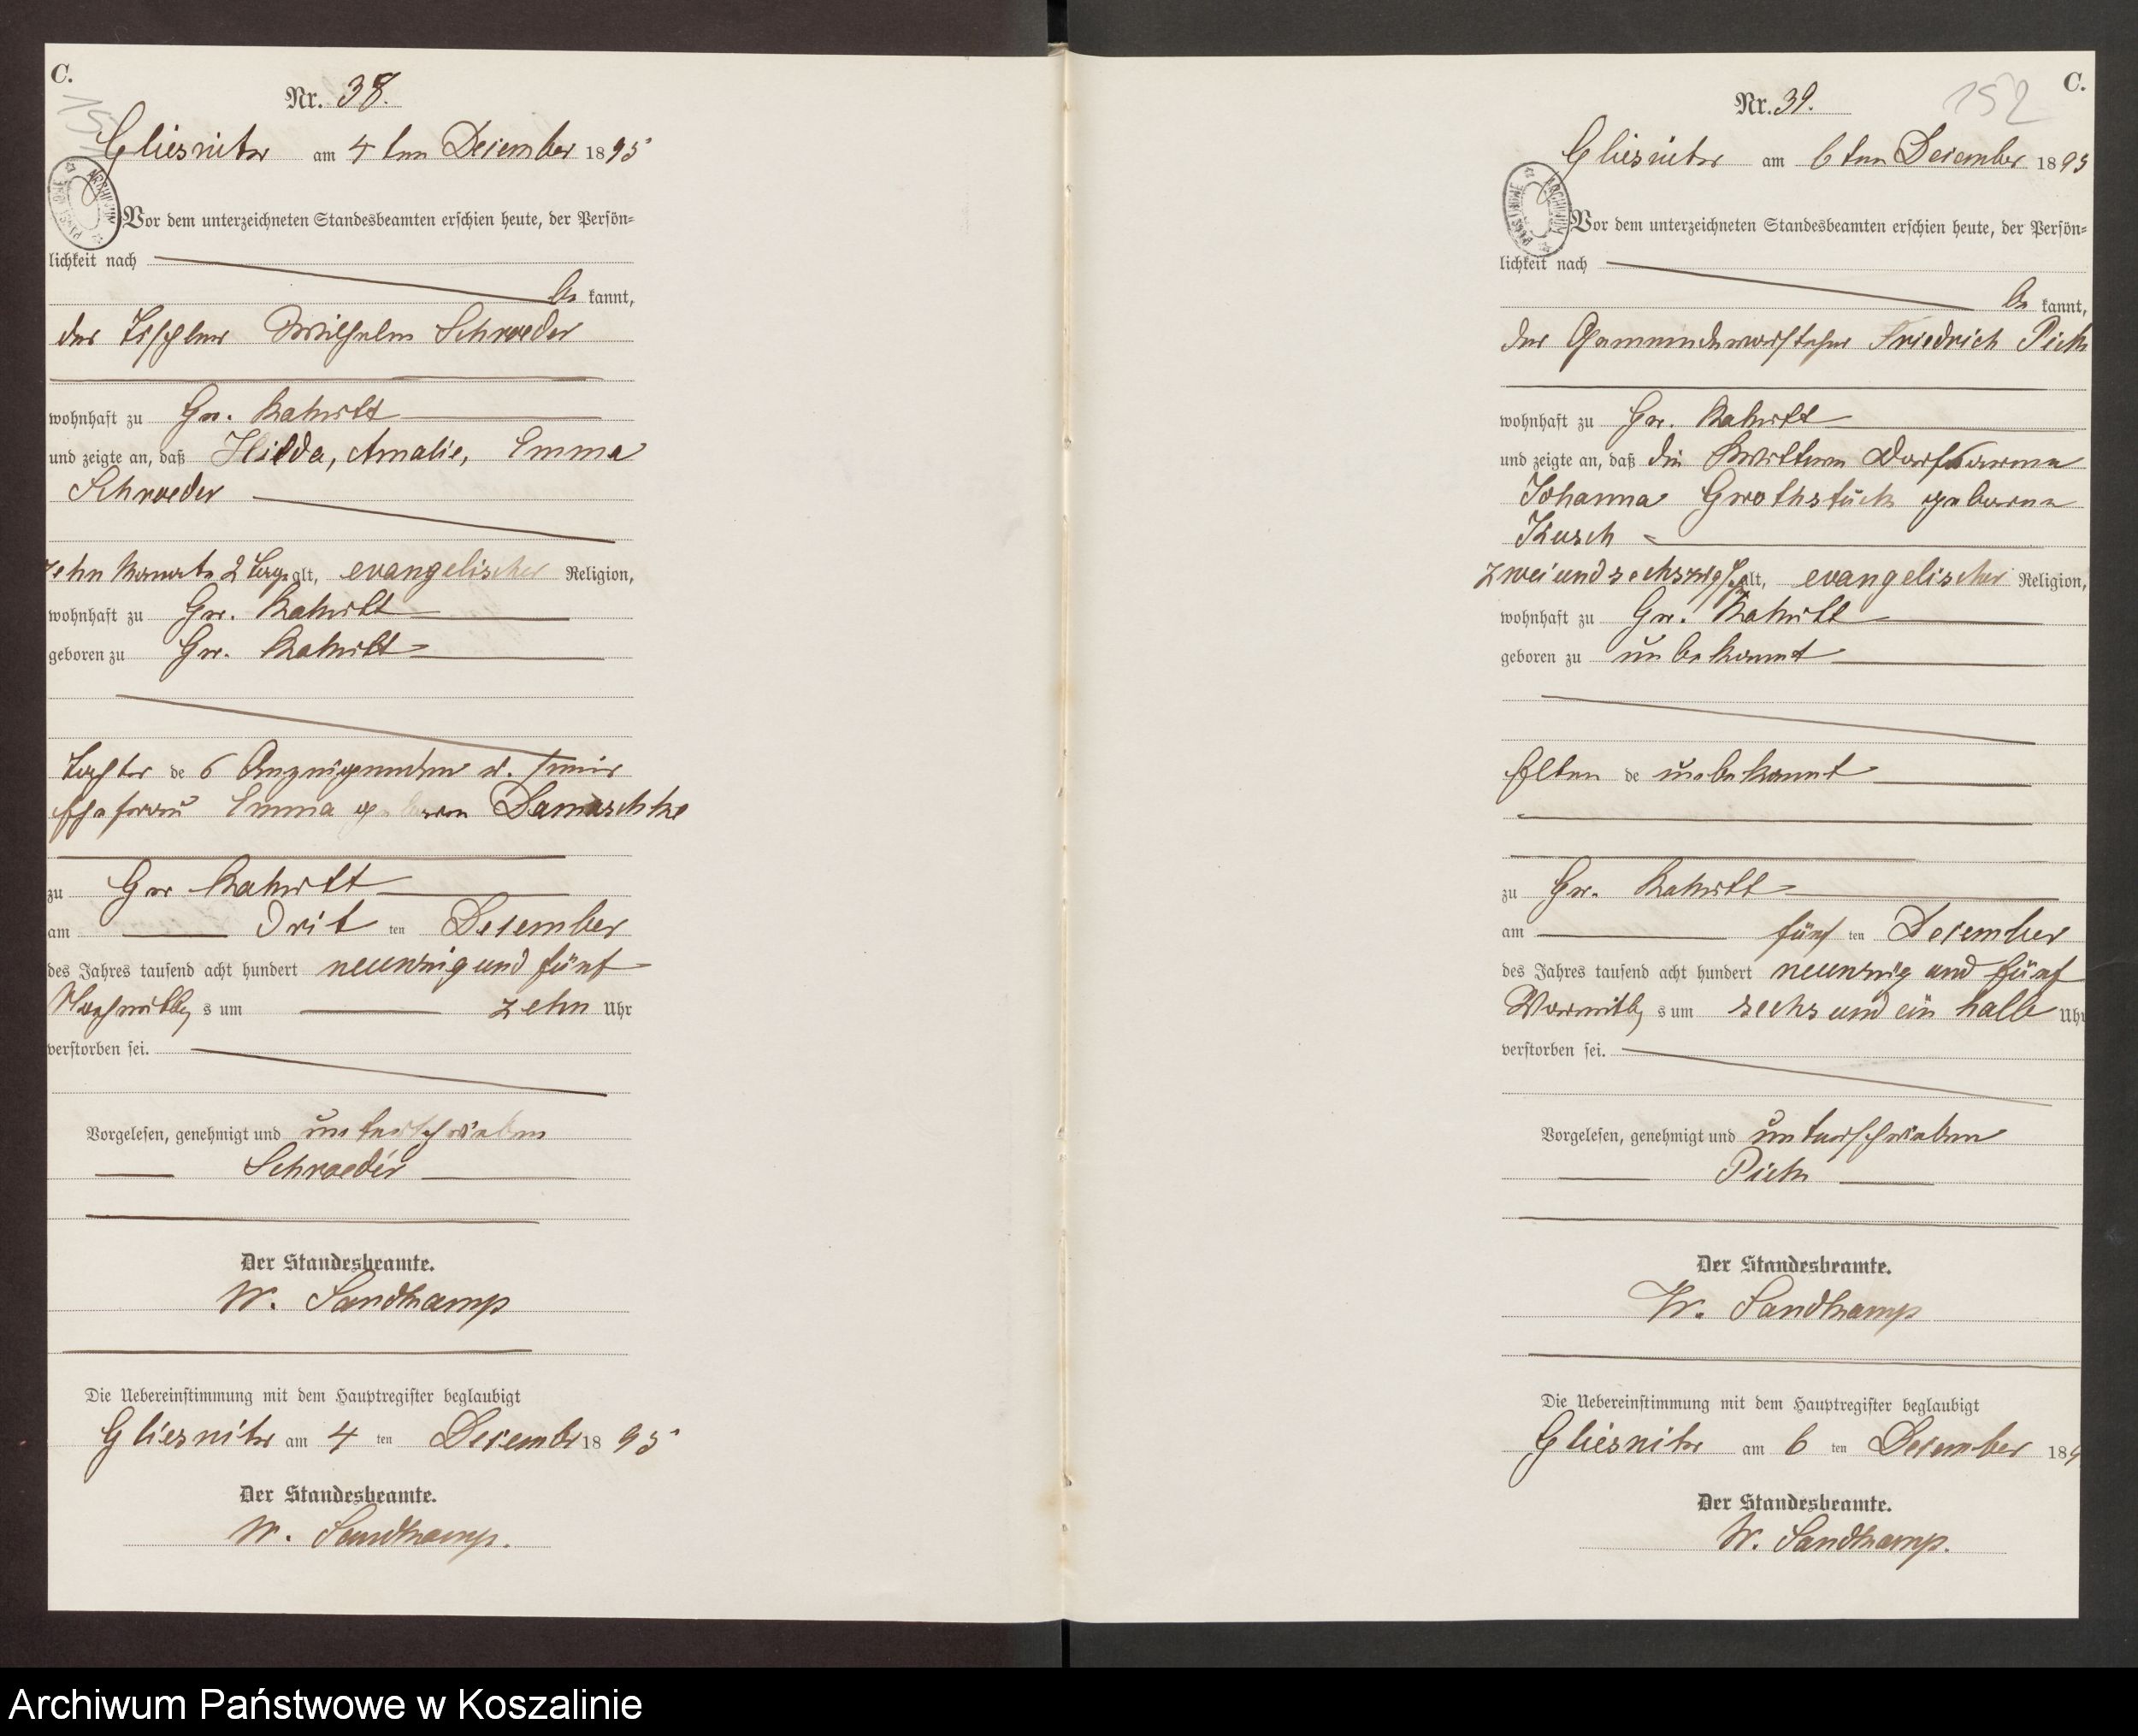 C.
151
Nr. 38.
Gliesnitz am 4ten Dezember 1895
Vor dem unterzeichneten Standesbeamten erschien heute, der Persön=
lichkeit nach
be kannt,
der Tischler Wilhelm Schroeder
wohnhaft zu Gr. Rakitt
und zeigte an, daß Hilda, Amalie, Emma
Schroeder
zehn Monate 2 Tage alt, evangelischer Religion,
wohnhaft zu Gr. Rakitt
geboren zu Gr. Rakitt
Tochter de s Anzeigenden u. seiner
Ehefrau Emma geboren Damaschke
zu Gr Rakitt
am Drit ten Dezember
des Jahres tausend acht hundert neunzig und fünf
Nachmittag s um zehn Uhr
verstorben sei.
Vorgelesen, genehmigt und unterschrieben
Schroeder
Der Standesbeamte.
W. Sandkamp
Die Uebereinstimmung mit dem Hauptregister beglaubigt
Gliesnitz am 4 ten Dezembr 18 95
Der Standesbeamte.
W. Sandkamp.
C.
152
Nr. 39.
Gliesnitz am 6ten Dezember 1895
Vor dem unterzeichneten Standesbeamten erschien heute, der Persön=
lichkeit nach
be kannt,
der Gemeindevorsteher Friedrich Piek
wohnhaft zu Gr. Rakitt
und zeigte an, daß die Dorfarme
Johanna Grothstück geborne
Kusch
zwei und sechszig alt, evangelischer Religion,
wohnhaft zu Gr. Rakitt
geboren zu unbekannt
Eltern de unbekannt
zu Gr. Rakitt
am fünf ten Dezember
des Jahres tausend acht hundert neunzig und fünf
Vormittag s um sechs und ein halb Uhr
verstorben sei.
Vorgelesen, genehmigt und unterschrieben
Piek
Der Standesbeamte.
W. Sandkamp
Die Uebereinstimmung mit dem Hauptregister beglaubigt
Gliesnitz am 6 ten Dezember 189
Der Standesbeamte.
W. Sandkamp.
Archiwum Państwowe w Koszalinie